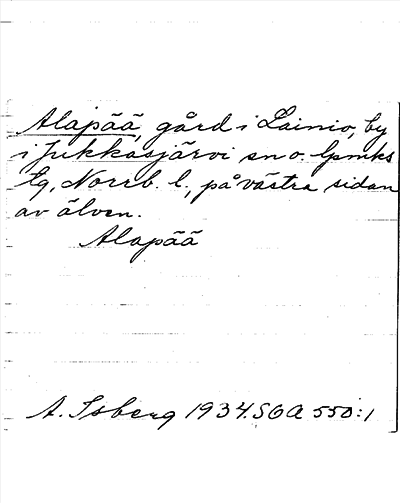 Alapää, gård i Lainio, by
i Jukkasjärvi sn o. lpmks
tg, Norrb. l., på västra sidan
av älven.
Alapää
A. Isberg 1934. SOA 550:1